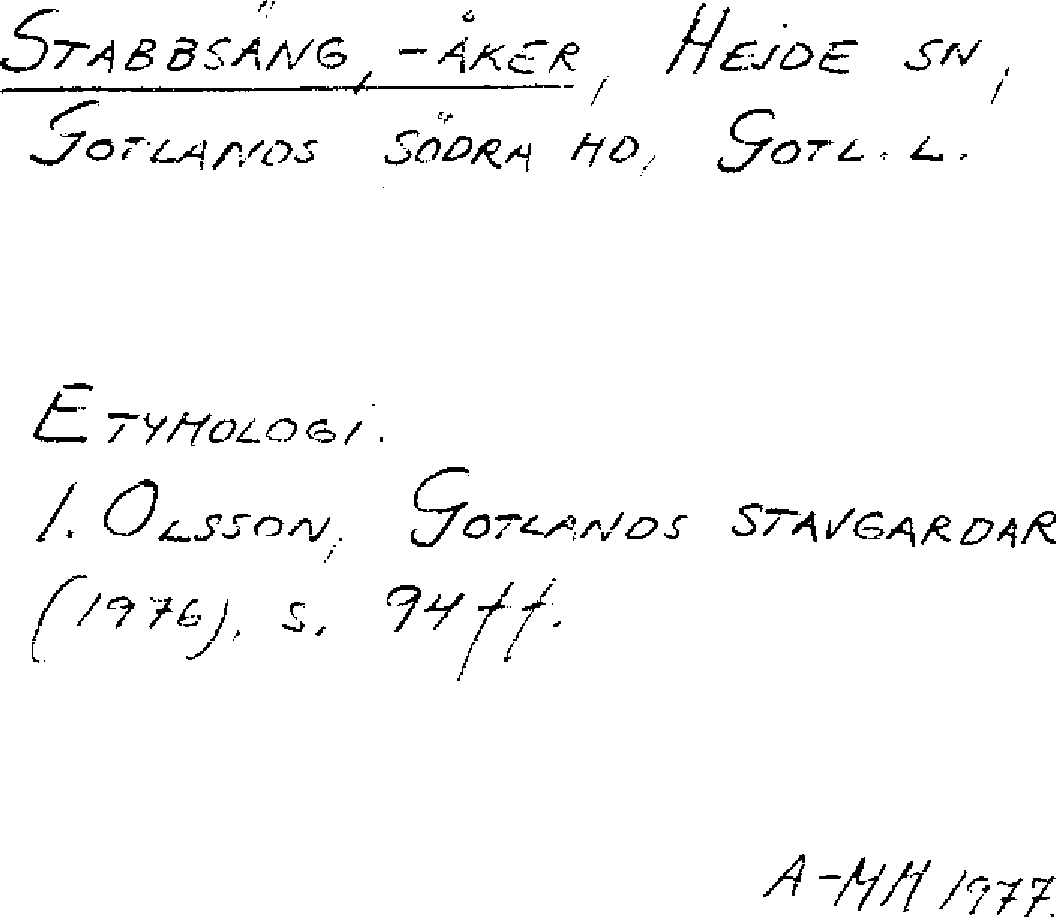 STABBSÄNG, -ÅKER, HEJDE SN,
GOTLANDS SÖDRA HD, GOTL. L.
ETYMOLOGI.
I. OLSSON, GOTLANDS STAVGARDAR
(1976), S. 94 ff.
A-MH 1977.